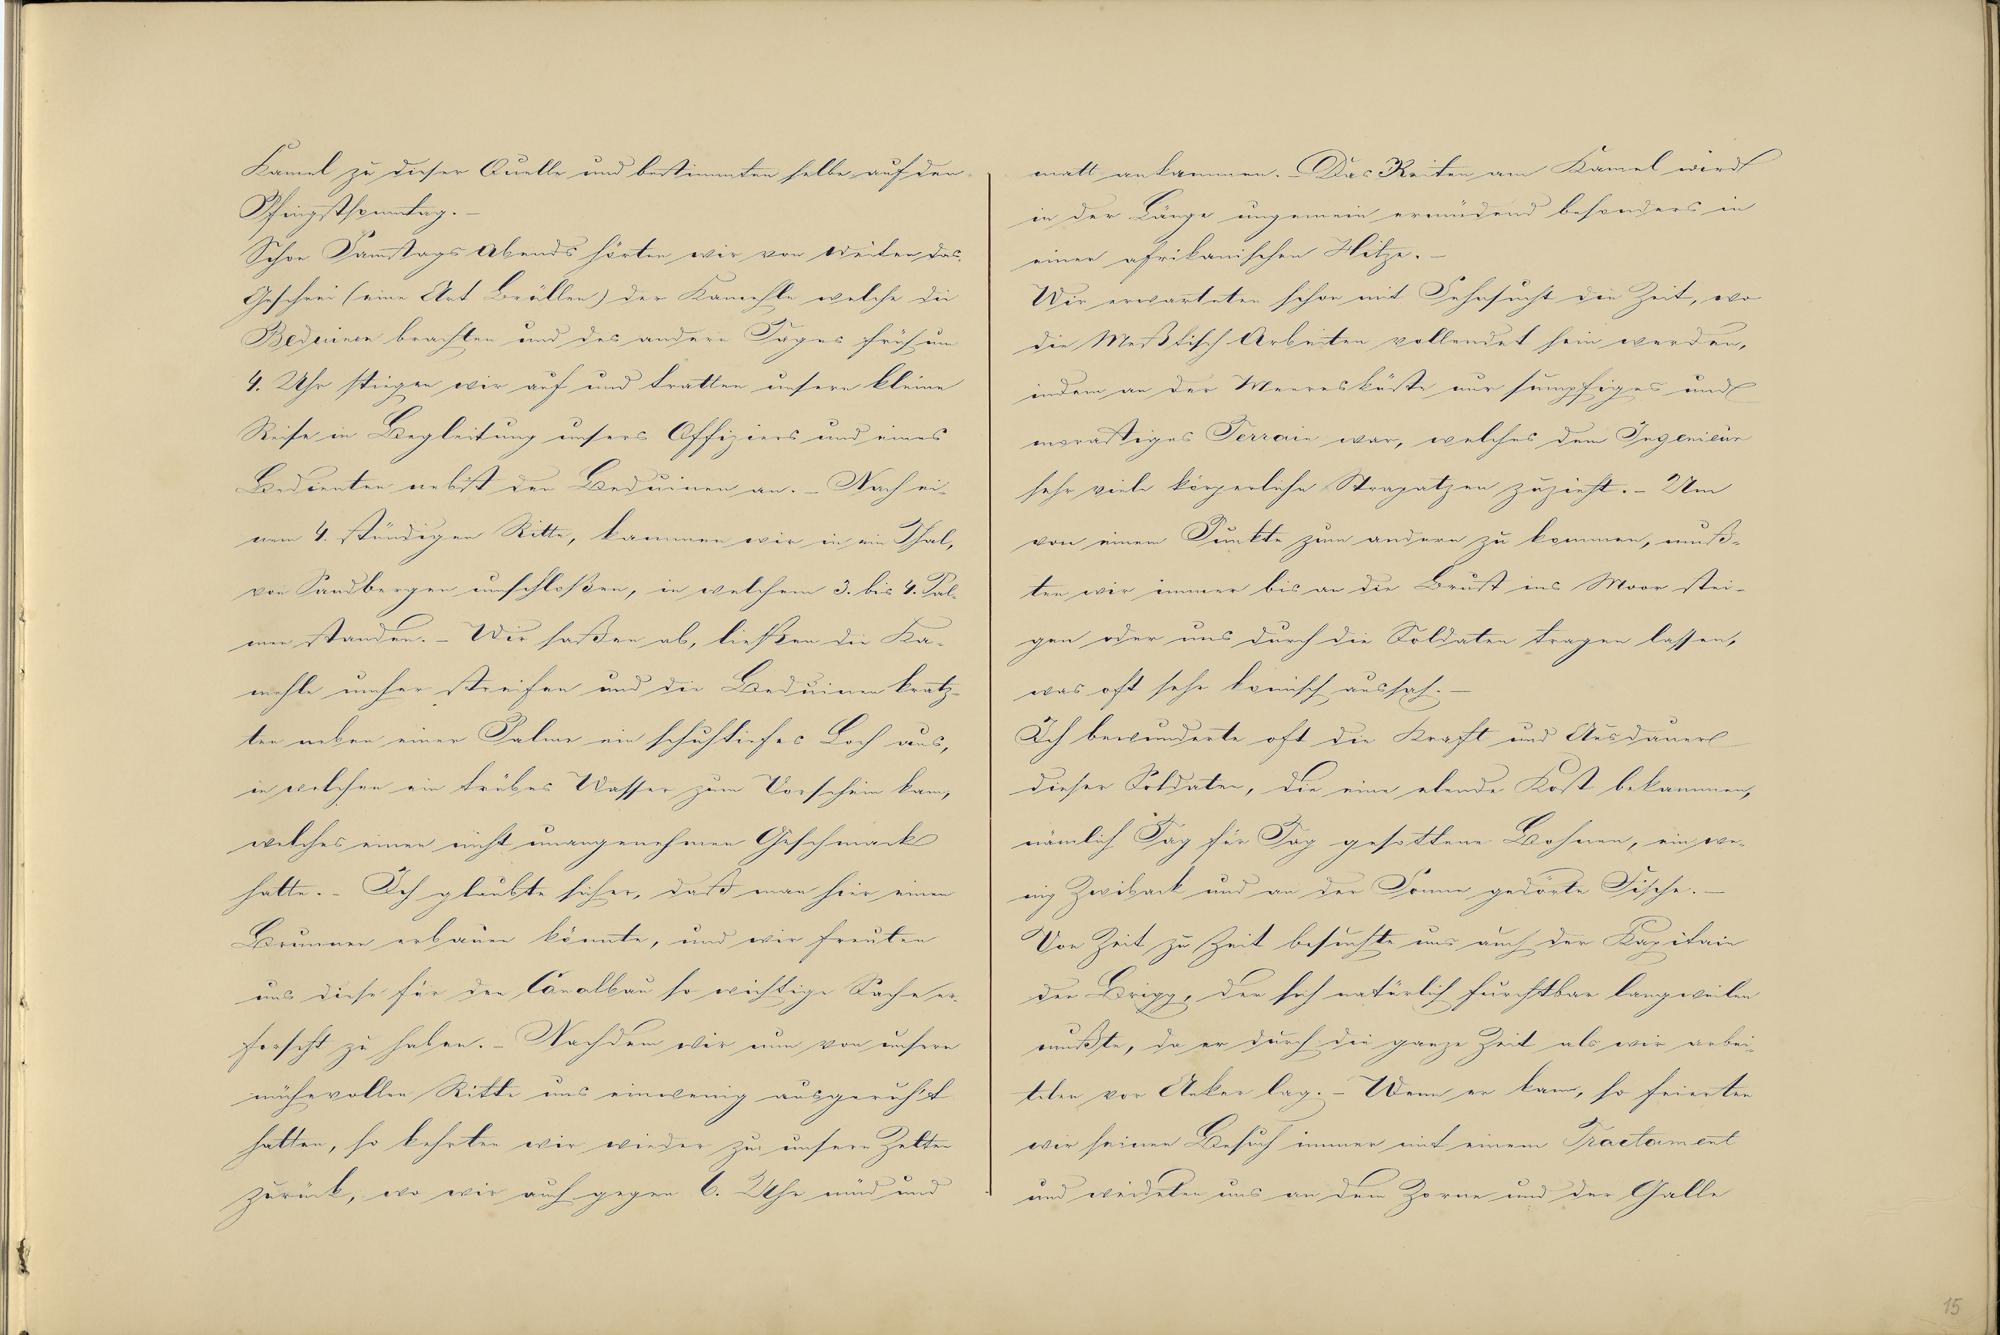 Kamel zu dieser Quelle und bestimmten selbe auf den
Pfingstsonntag. –
Schon Samstags Abends hörten wir von weiten das
Geschrei (eine Art Brüllen) der Kamehle welche die
Beduinen brachten und des andern Tages früh um
4. Uhr stiegen wir auf und tratten unsere kleine
Reise in Begleitung unsers Offiziers und eines
Bedienten nebst den Beduinen an. – Nach ei-
nem 4. stündigen Ritte, kammen wir in ein Thal,
von Sandbergen umschloßen, in welchem 3. bis 4. Pal-
men standen. – Wir saßen ab, ließen die Ka-
mehle umher streifen und die Beduinen kratz-
ten neben einer Palme ein schuhtiefes Loch aus,
in welchen ein trübes Wasser zum Vorschein kam,
welches einen nicht unangenehmen Geschmack
hatte. – Ich glaubte sicher, daß man hier einen
Brunnen erbauen könnte, und wir freuten
uns diese für den Canalbau so wichtige Sache er-
forscht zu haben. – Nachdem wir nun von unsern
mühevollen Ritte uns einwenig ausgeruh't
hatten, so kehrten wir wieder zu unsern Zelten
zurück, wo wir auch gegen 6. Uhr müd und
matt ankammen. – Das Reiten am Kamel wird
in der Länge ungemein ermüdend besonders in
einer afrikanischen Hitze. –
Wir erwarteten schon mit Sehnsucht die Zeit, wo
die Meßtisch Arbeiten vollendet sein werden,
indem an der Meeresküste nur sumpfiges und
morastiges Terrain war, welches dem Ingenieur
sehr viele körperliche Strapatzen zuzieht. – Um
von einem Punkte zum andern zu kommen, muß-
ten wir immer bis an die Brust ins Moor stei-
gen oder uns durch die Soldaten tragen lassen,
was oft sehr komisch aussah. –
Ich bewunderte oft die Kraft und Ausdauer
dieser Soldaten, die eine elende Kost bekammen,
nämlich Tag für Tag gesottene Bohnen, ein we-
nig Zwiback und an der Sonne gedörte Fische. –
Von Zeit zu Zeit besuchte uns auch der Kapitain
der Brigg, der sich natürlich furchtbar langweilen
mußte, da er durch die ganze Zeit als wir arbei-
teten vor Anker lag. – Wenn er kam, so feierten
wir seinen Besuch immer mit einem Tractament
und weideten uns an dem Zorne und der Galle
15